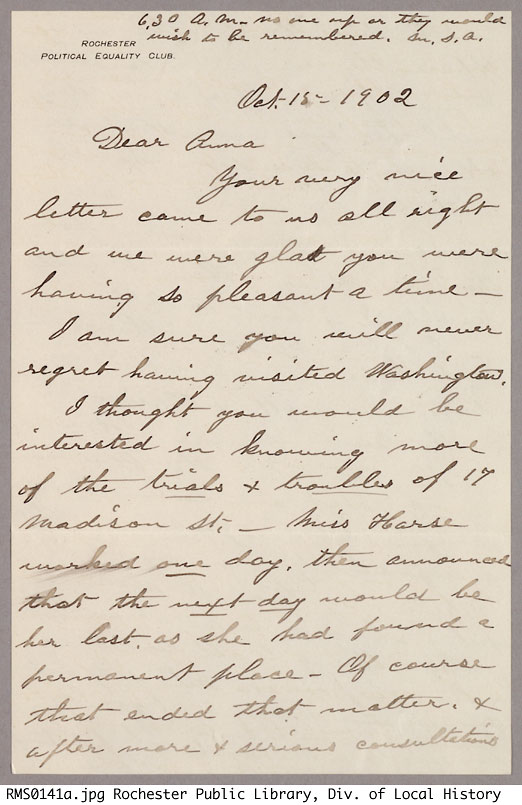 6.30 A.M. no one up or they would
wish to be remembered. M.S.A.
ROCHESTER
POLITICAL EQUALITY CLUB.
Oct. 15 - 1902
Dear Anna
Your very nice
letter came to us all right
and we were glad you were
having so pleasant a time —
I am sure you will never
regret having visited Washington.
I thought you would be
interested in knowing more
of the trials & troubles of 17
Madison St. — Miss Harse
worked one day, then announced
that the next day would be
her last, as she had found a
permanent place — Of course
that ended that matter, &
after more & serious consultations
RMS0141a.jpg Rochester Public Library, Div. of Local History